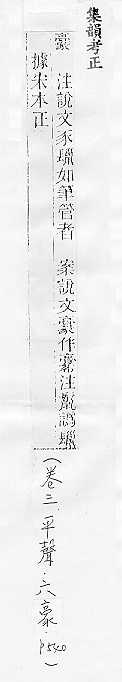 集韻考正
豪 注說文豕鬣如筆管者 案說文豪作注譌
據宋本正
(卷三.平聲.六豪.P540)